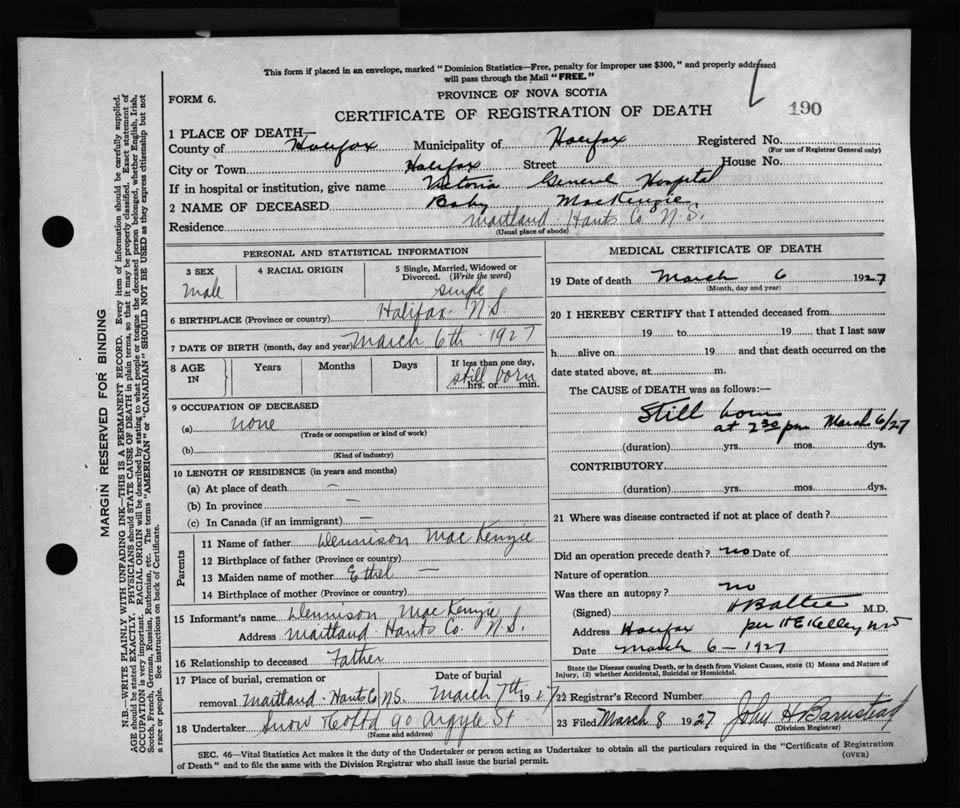 This form if placed in an envelope, marked "Dominion Statistics—Free, penalty for improper use $300," and properly addressed
will pass through the Mail "FREE."
FORM 6.
PROVINCE OF NOVA SCOTIA
CERTIFICATE OF REGISTRATION OF DEATH
190
1 PLACE OF DEATH—
County of Halifax Municipality of Halifax Registered No.
(For use of Registrar General only)
City or Town Halifax Street House No.
If in hospital or institution, give name Victoria General Hospital
2 NAME OF DECEASED Baby MacKenzie
Residence Maitland Hants Co N.S.
(Usual place of abode)
PERSONAL AND STATISTICAL INFORMATION
3 SEX 4 RACIAL ORIGIN 5 Single, Married, Widowed or
Divorced. (Write the word)
Male single
6 BIRTHPLACE (Province or country) Halifax N.S.
7 DATE OF BIRTH (month, day and year) March 6th 1927
8 AGE IN Years Months Days If less than one day,
still born
hrs. or min.
9 OCCUPATION OF DECEASED
(a) none
(Trade or occupation or kind of work)
(b)
(Kind of industry)
10 LENGTH OF RESIDENCE (in years and months)
(a) At place of death —
(b) In province —
(c) In Canada (if an immigrant) —
Parents
11 Name of father Dennison MacKenzie
12 Birthplace of father (Province or country)
13 Maiden name of mother Ethel —
14 Birthplace of mother (Province or country)
15 Informant's name Dennison MacKenzie
Address Maitland Hants Co. N.S.
16 Relationship to deceased Father
17 Place of burial, cremation or Date of burial
removal Maitland Hants Co N.S. March 7th 1927
18 Undertaker Snow & Co Ltd 90 Argyle St
(Name and address)
MEDICAL CERTIFICATE OF DEATH
19 Date of death March 6 1927
(Month, day and year)
20 I HEREBY CERTIFY that I attended deceased from
19 to 19 that I last saw
h alive on 19 and that death occurred on the
date stated above, at m.
The CAUSE of DEATH was as follows:—
Still born
at 2 30 pm March 6/27
(duration) yrs. mos. dys.
CONTRIBUTORY
(duration) yrs. mos. dys.
21 Where was disease contracted if not at place of death?
Did an operation precede death? no Date of
Nature of operation
Was there an autopsy? no
(Signed) M.D.
Address Halifax per H E Kelley MD
Date March 6 – 1927
State the Disease causing Death, or in death from Violent Causes, state (1) Means and Nature of
Injury, (2) whether Accidental, Suicidal or Homicidal.
22 Registrar's Record Number
23 Filed March 8 1927 John H Barnstead
(Division Registrar)
SEC. 46—Vital Statistics Act makes it the duty of the Undertaker or person acting as Undertaker to obtain all the particulars required in the "Certificate of Registration
of Death" and to file the same with the Division Registrar who shall issue the burial permit.
(OVER)
MARGIN RESERVED FOR BINDING
N.B.—WRITE PLAINLY WITH UNFADING INK—THIS IS A PERMANENT RECORD. Every item of information should be carefully supplied.
AGE should be stated EXACTLY. PHYSICIANS should STATE CAUSE OF DEATH in plain terms, so that it may be properly classified. Exact statement of
OCCUPATION is very important. RACIAL ORIGIN will be described by stating to what people or tongue the deceased person belonged, whether English, Irish,
Scotch, French, German, Russian, Ruthenian, etc. The terms "AMERICAN" or "CANADIAN" SHOULD NOT BE USED as they express citizenship but not
a race or people. See instructions on back of Certificate.